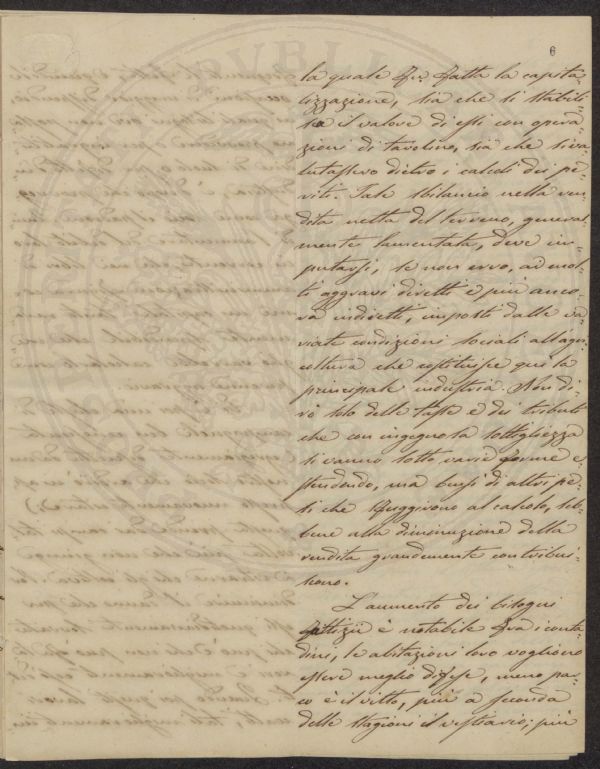 6
la quale fu fatta la capita-
lizzazione, sia che si stabili-
sca il valore di essi con opera-
zioni di tavolino, sia che si va-
lutassero dietro i calcoli dei pe-
riti. Tale sbilancio nella ren-
dita netta del terreno, general-
mente lamentata, deve im-
putarsi, se non erro, ad mol-
ti aggravi diretti e più anco-
ra indiretti, imposti dalle va-
riate condizioni sociali all'agri-
coltura che costituisce qui la
principale industria. Non di-
rò solo delle tasse e dei tributi
che con ingegnosa sottigliezza
si vanno sotto varie forme e-
stendendo, ma bensì di altri pe-
si che sfuggirono al calcolo, seb-
bene alla diminuzione della
rendita grandemente contribui-
scono.
L'aumento dei bisogni
fittizii è notabile fra i conta-
dini, le abitazioni loro vogliono
essere meglio difese, meno par-
co è il vitto, più a seconda
delle stagioni il vestiario; più